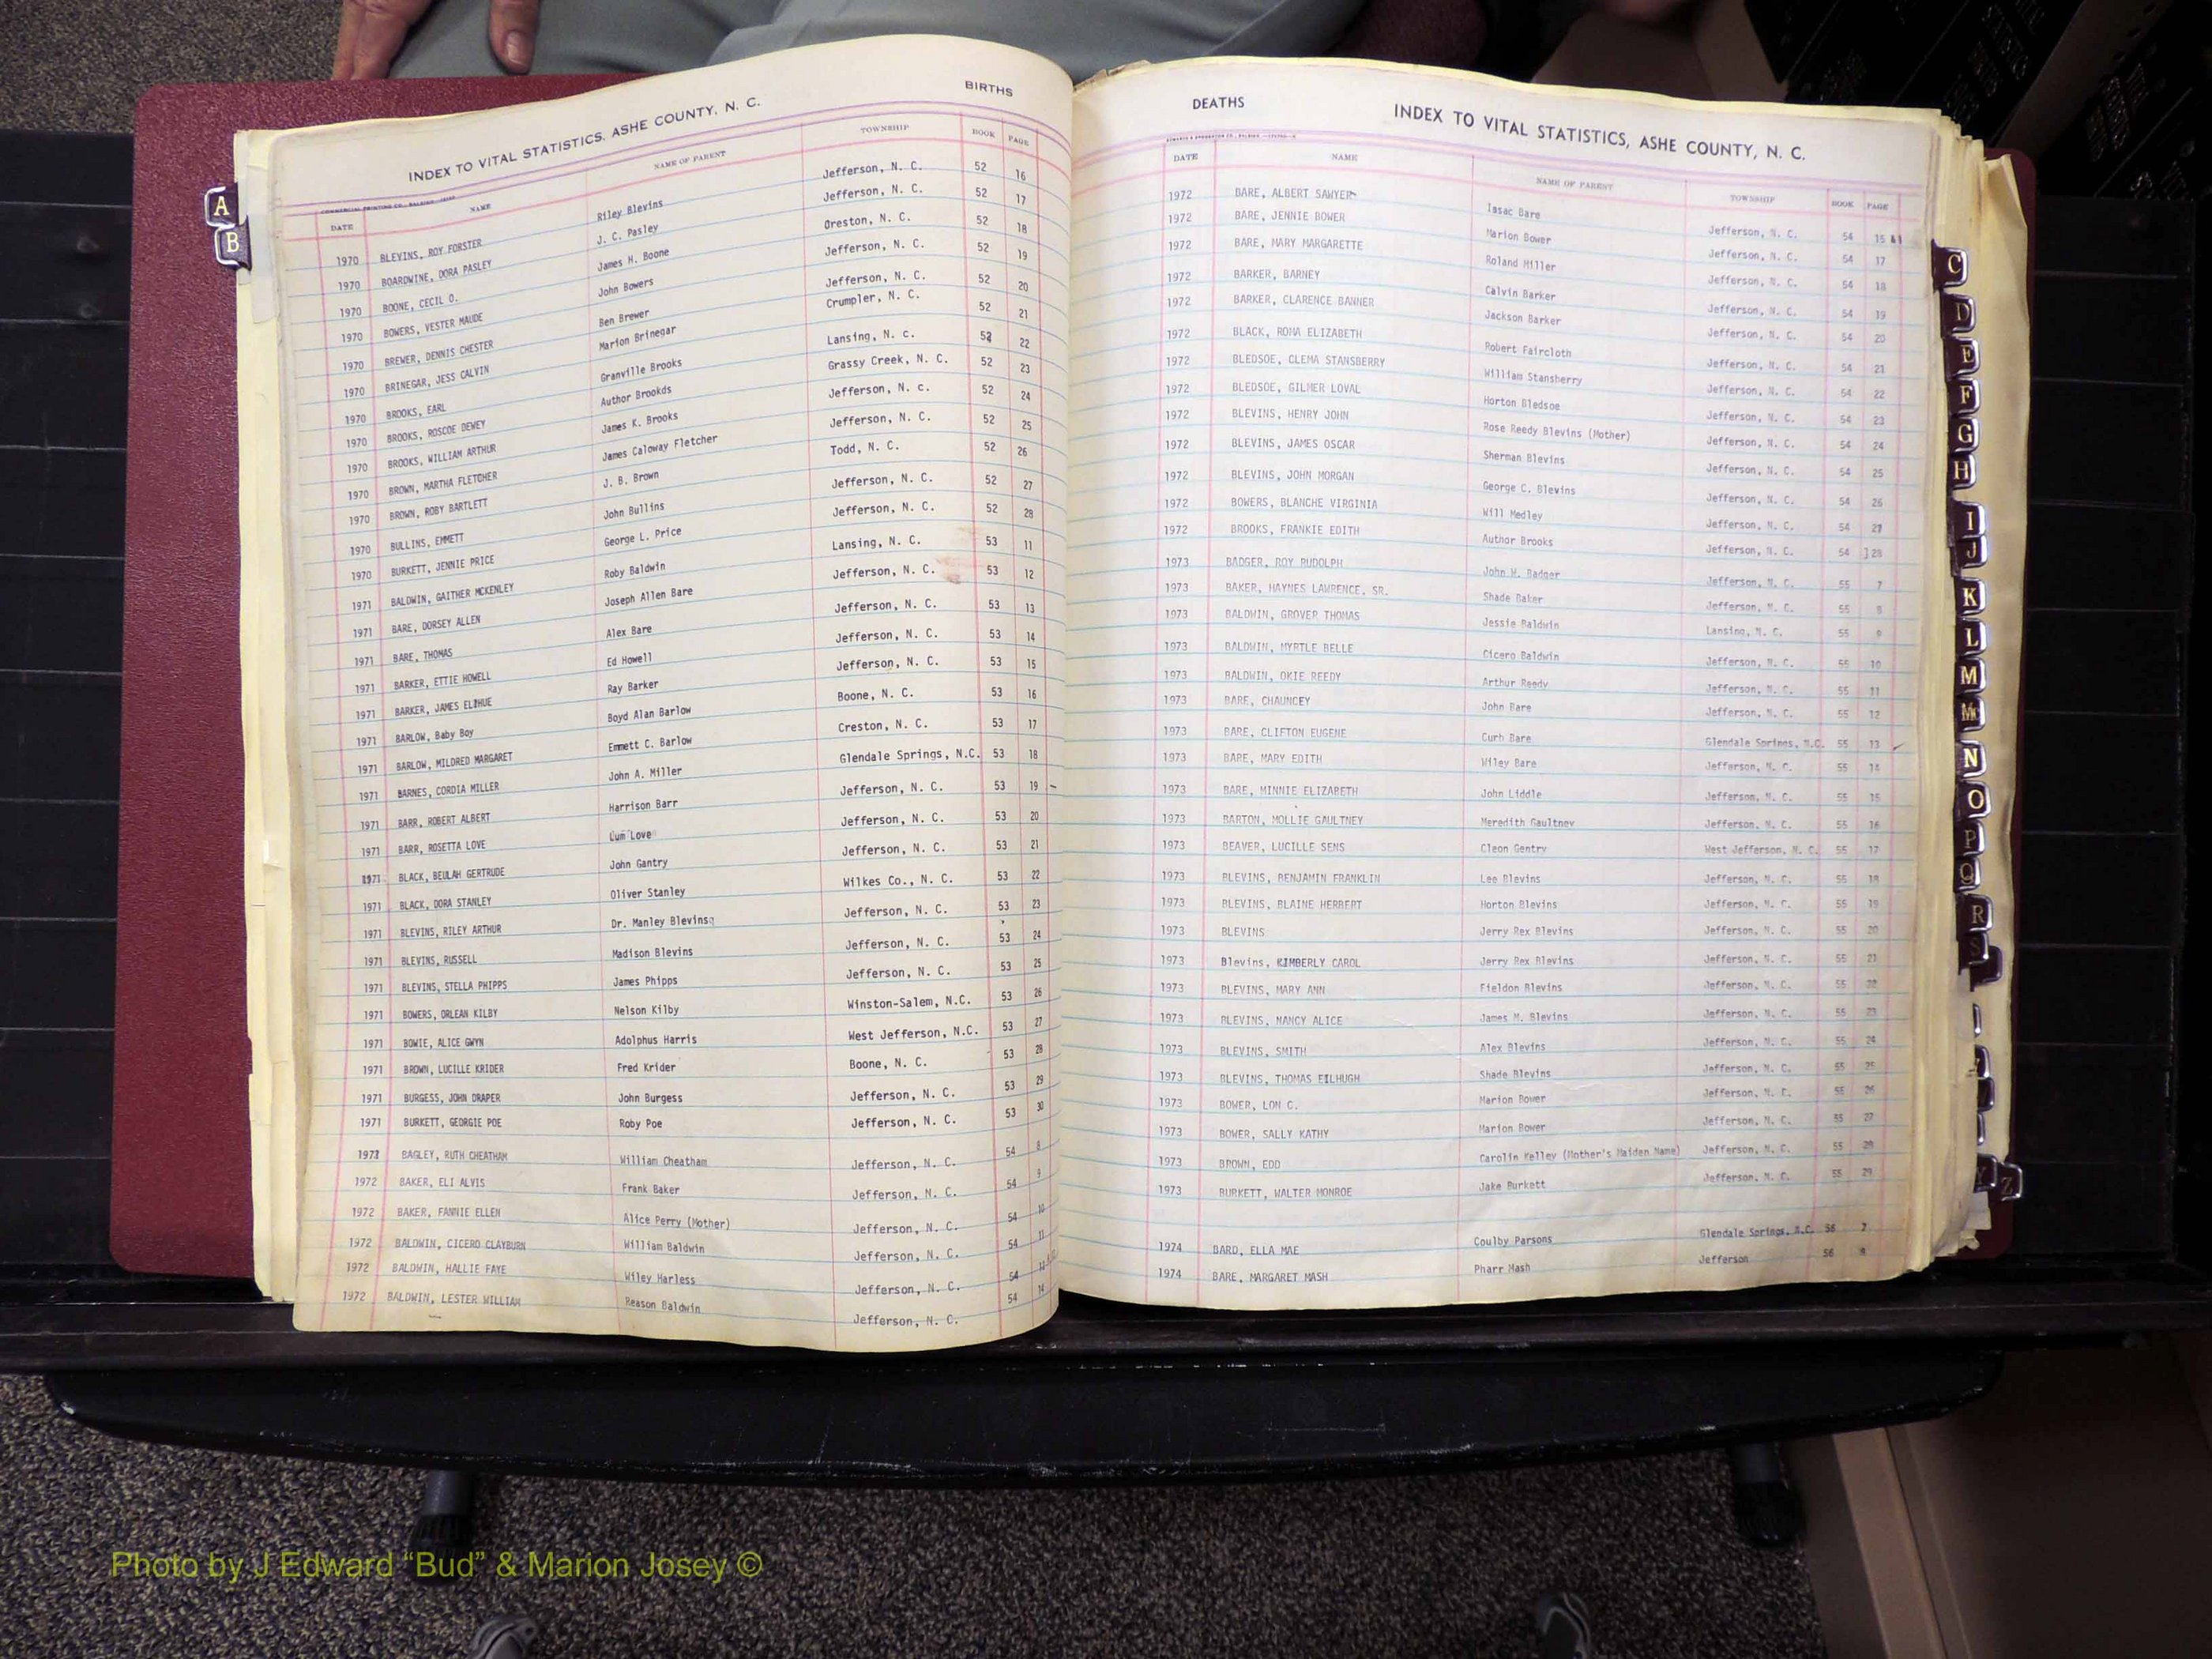 INDEX TO VITAL STATISTICS, ASHE COUNTY, N. C. BIRTHS
DATE NAME NAME OF PARENT TOWNSHIP BOOK PAGE
1970 BLEVINS, ROY FORSTER Riley Blevins Jefferson, N. C. 52 16
1970 BOARDWINE, DORA PASLEY J. C. Pasley Jefferson, N. C. 52 17
1970 BOONE, CECIL O. James H. Boone Oreston, N. C. 52 18
1970 BOWERS, VESTER MAUDE John Bowers Jefferson, N. C. 52 19
1970 BREWER, DENNIS CHESTER Ben Brewer Jefferson, N. C. 52 20
1970 BRINEGAR, JESS CALVIN Marion Brinegar Crumpler, N. C. 52 21
1970 BROOKS, EARL Granville Brooks Lansing, N. c. 52 22
1970 BROOKS, ROSCOE DEWEY Author Brookds Grassy Creek, N. C. 52 23
1970 BROOKS, WILLIAM ARTHUR James K. Brooks Jefferson, N. c. 52 24
1970 BROWN, MARTHA FLETCHER James Caloway Fletcher Jefferson, N. C. 52 25
1970 BROWN, ROBY BARTLETT J. B. Brown Todd, N. C. 52 26
1970 BULLINS, EMMETT John Bullins Jefferson, N. C. 52 27
1970 BURKETT, JENNIE PRICE George L. Price Jefferson, N. C. 52 28
1971 BALDWIN, GAITHER MCKENLEY Roby Baldwin Lansing, N. C. 53 11
1971 BARE, DORSEY ALLEN Joseph Allen Bare Jefferson, N. C. 53 12
1971 BARE, THOMAS Alex Bare Jefferson, N. C. 53 13
1971 BARKER, ETTIE HOWELL Ed Howell Jefferson, N. C. 53 14
1971 BARKER, JAMES ELIHUE Ray Barker Jefferson, N. C. 53 15
1971 BARLOW, Baby Boy Boyd Alan Barlow Boone, N. C. 53 16
1971 BARLOW, MILDRED MARGARET Emmett C. Barlow Creston, N. C. 53 17
1971 BARNES, CORDIA MILLER John A. Miller Glendale Springs, N.C. 53 18
1971 BARR, ROBERT ALBERT Harrison Barr Jefferson, N. C. 53 19
1971 BARR, ROSETTA LOVE Lum Love Jefferson, N. C. 53 20
1971 BLACK, BEULAH GERTRUDE John Gantry Jefferson, N. C. 53 21
1971 BLACK, DORA STANLEY Oliver Stanley Wilkes Co., N. C. 53 22
1971 BLEVINS, RILEY ARTHUR Dr. Manley Blevins Jefferson, N. C. 53 23
1971 BLEVINS, RUSSELL Madison Blevins Jefferson, N. C. 53 24
1971 BLEVINS, STELLA PHIPPS James Phipps Jefferson, N. C. 53 25
1971 BOWERS, ORLEAN KILBY Nelson Kilby Winston-Salem, N.C. 53 26
1971 BOWIE, ALICE GWYN Adolphus Harris West Jefferson, N.C. 53 27
1971 BROWN, LUCILLE KRIDER Fred Krider Boone, N. C. 53 28
1971 BURGESS, JOHN DRAPER John Burgess Jefferson, N. C. 53 29
1971 BURKETT, GEORGIE POE Roby Poe Jefferson, N. C. 53 30
1972 BAGLEY, RUTH CHEATHAM William Cheatham Jefferson, N. C. 54 8
1972 BAKER, ELI ALVIS Frank Baker Jefferson, N. C. 54 9
1972 BAKER, FANNIE ELLEN Alice Perry (Mother) Jefferson, N. C. 54 10
1972 BALDWIN, CICERO CLAYBURN William Baldwin Jefferson, N. C. 54 11
1972 BALDWIN, HALLIE FAYE Wiley Harless Jefferson, N. C. 54
1972 BALDWIN, LESTER WILLIAM Reason Baldwin Jefferson, N. C. 54 14
DEATHS INDEX TO VITAL STATISTICS, ASHE COUNTY, N. C.
DATE NAME NAME OF PARENT TOWNSHIP BOOK PAGE
1972 BARE, ALBERT SAWYER Issac Bare Jefferson, N. C. 54 15
1972 BARE, JENNIE BOWER Marion Bower Jefferson, N. C. 54 17
1972 BARE, MARY MARGARETTE Roland Miller Jefferson, N. C. 54 18
1972 BARKER, BARNEY Calvin Barker Jefferson, N. C. 54 19
1972 BARKER, CLARENCE BANNER Jackson Barker Jefferson, N. C. 54 20
1972 BLACK, ROMA ELIZABETH Robert Faircloth Jefferson, N. C. 54 21
1972 BLEDSOE, CLEMA STANSBERRY William Stansberry Jefferson, N. C. 54 22
1972 BLEDSOE, GILMER LOVAL Horton Bledsoe Jefferson, N. C. 54 23
1972 BLEVINS, HENRY JOHN Rose Reedy Blevins (Mother) Jefferson, N. C. 54 24
1972 BLEVINS, JAMES OSCAR Sherman Blevins Jefferson, N. C. 54 25
1972 BLEVINS, JOHN MORGAN George C. Blevins Jefferson, N. C. 54 26
1972 BOWERS, BLANCHE VIRGINIA Will Medley Jefferson, N. C. 54 27
1972 BROOKS, FRANKIE EDITH Author Brooks Jefferson, N. C. 54 28
1973 BADGER, ROY RUDOLPH John W. Badger Jefferson, N. C. 55 7
1973 BAKER, HAYNES LAWRENCE, SR. Shade Baker Jefferson, N. C. 55 8
1973 BALDWIN, GROVER THOMAS Jessie Baldwin Lansing, N. C. 55 9
1973 BALDWIN, MYRTLE BELLE Cicero Baldwin Jefferson, N. C. 55 10
1973 BALDWIN, OKIE REEDY Arthur Reedy Jefferson, N. C. 55 11
1973 BARE, CHAUNCEY John Bare Jefferson, N. C. 55 12
1973 BARE, CLIFTON EUGENE Curb Bare Glendale Springs, N.C. 55 13
1973 BARE, MARY EDITH Wiley Bare Jefferson, N. C. 55 14
1973 BARE, MINNIE ELIZABETH John Liddle Jefferson, N. C. 55 15
1973 BARTON, MOLLIE GAULTNEY Meredith Gaultney Jefferson, N. C. 55 16
1973 BEAVER, LUCILLE SENS Cleon Gentry West Jefferson, N. C. 55 17
1973 BLEVINS, BENJAMIN FRANKLIN Lee Blevins Jefferson, N. C. 55 18
1973 BLEVINS, BLAINE HERBERT Horton Blevins Jefferson, N. C. 55 19
1973 BLEVINS Jerry Rex Blevins Jefferson, N. C. 55 20
1973 Blevins, KIMBERLY CAROL Jerry Rex Blevins Jefferson, N. C. 55 21
1973 BLEVINS, MARY ANN Fieldon Blevins Jefferson, N. C. 55 22
1973 BLEVINS, NANCY ALICE James M. Blevins Jefferson, N. C. 55 23
1973 BLEVINS, SMITH Alex Blevins Jefferson, N. C. 55 24
1973 BLEVINS, THOMAS EILHUGH Shade Blevins Jefferson, N. C. 55 25
1973 BOWER, LON C. Marion Bower Jefferson, N. C. 55 26
1973 BOWER, SALLY KATHY Marion Bower Jefferson, N. C. 55 27
1973 BROWN, EDD Carolin Kelley (Mother's Maiden Name) Jefferson, N. C. 55 28
1973 BURKETT, WALTER MONROE Jake Burkett Jefferson, N. C. 55 29
1974 BARD, ELLA MAE Coulby Parsons Glendale Springs, N.C. 56 7
1974 BARE, MARGARET MASH Pharr Mash Jefferson 56 8
A
B
C
D
E
F
G
H
I
J
K
L
M
Mc
N
O
P
Q
R
S
Z
Photo by J Edward “Bud” & Marion Josey ©